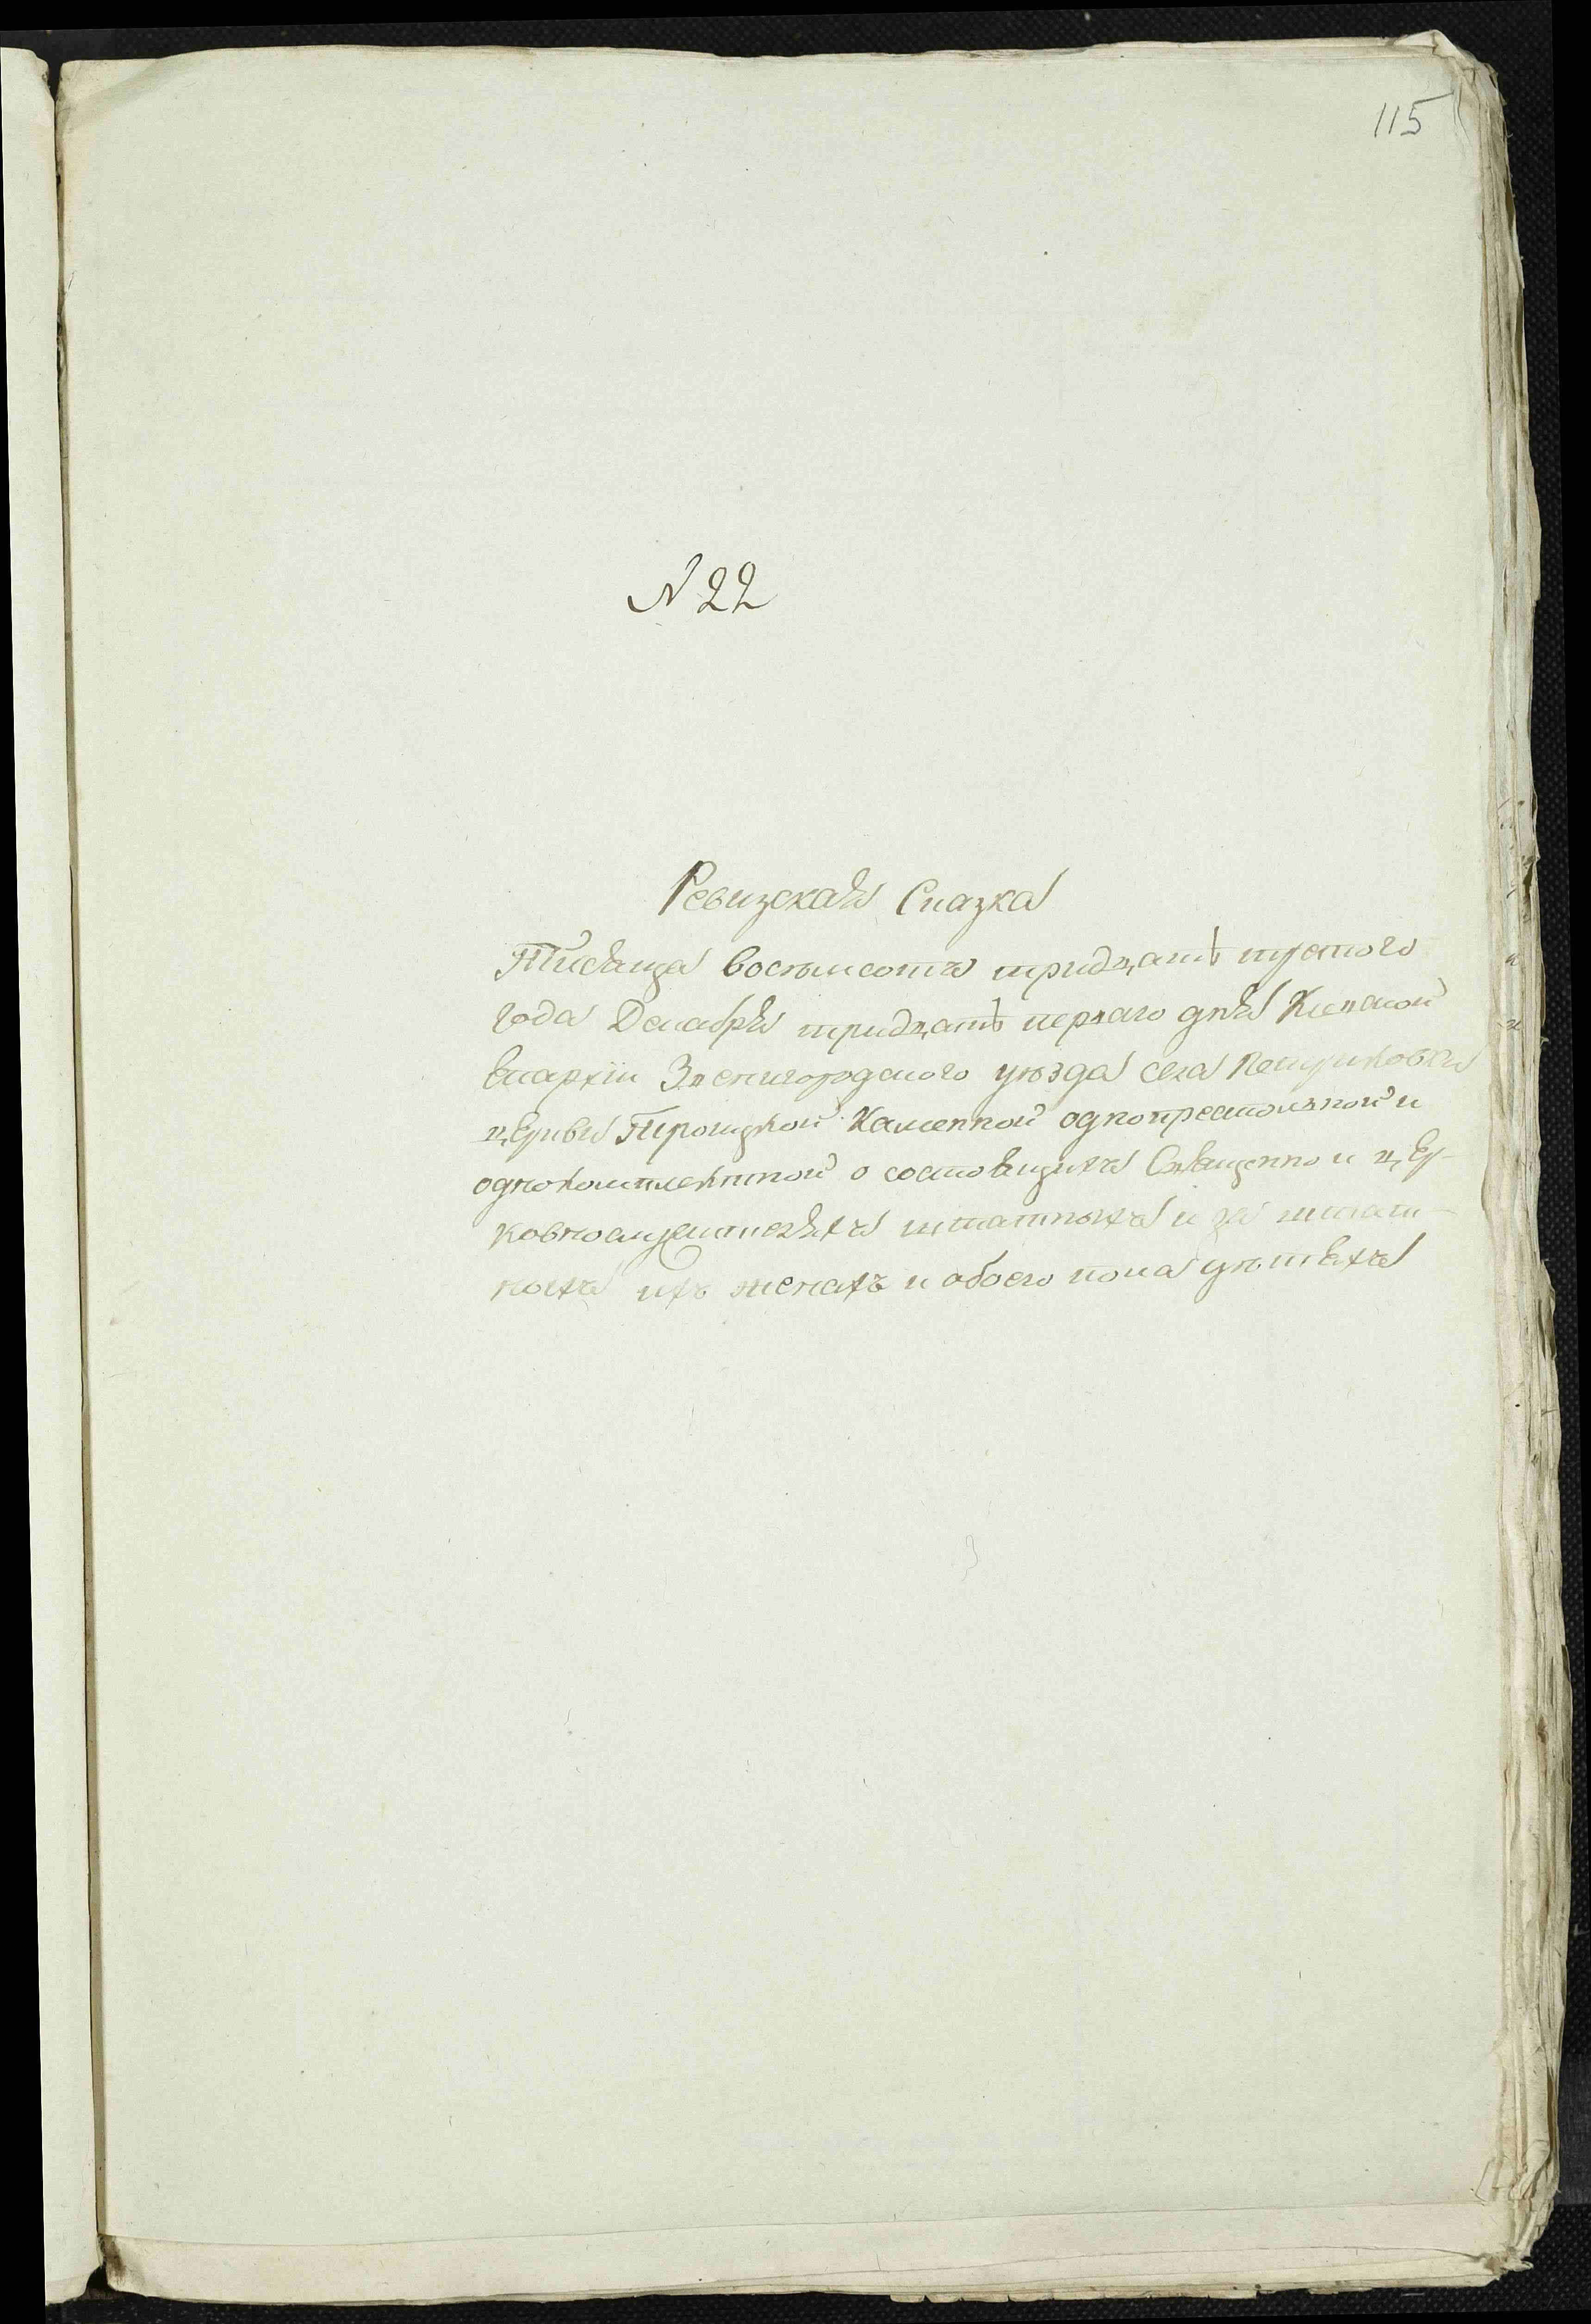 115
N 22
Ревизская Сказка
Тысяща восемсотъ тридцать третого
года Декабря тридцать перваго дня Киевской
Епархіи Звенигородского уѣзда села
церкви Троицкой Каменной однопрестольной и
однокомплектной о состоящихъ Священно и цер-
ковнослужителяхъ штатныхъ и за штат-
ныхъ ихъ женахъ и обоего пола дѣтяхъ